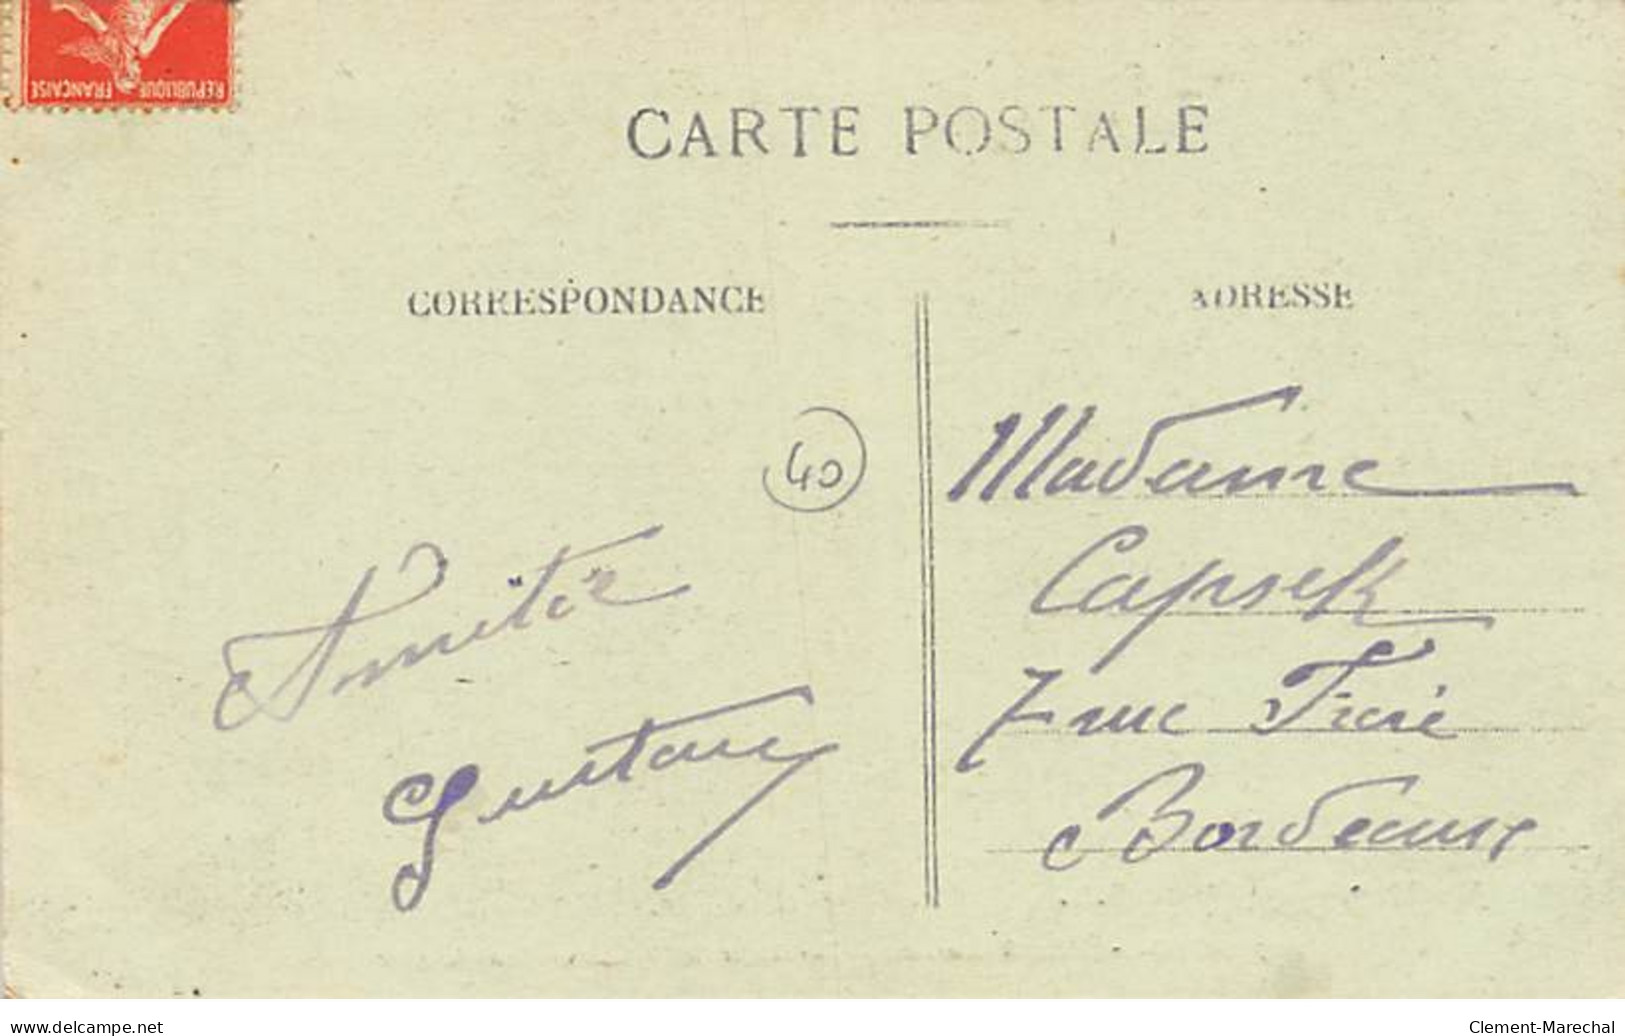 RÉPUBLIQUE FRANÇAISE
CARTE POSTALE
CORRESPONDANCE
ADRESSE
40
Madame
Capsek
7 rue
Bordeaux
Amitié
Gustave
www.delcampe.net
Clement-Marechal